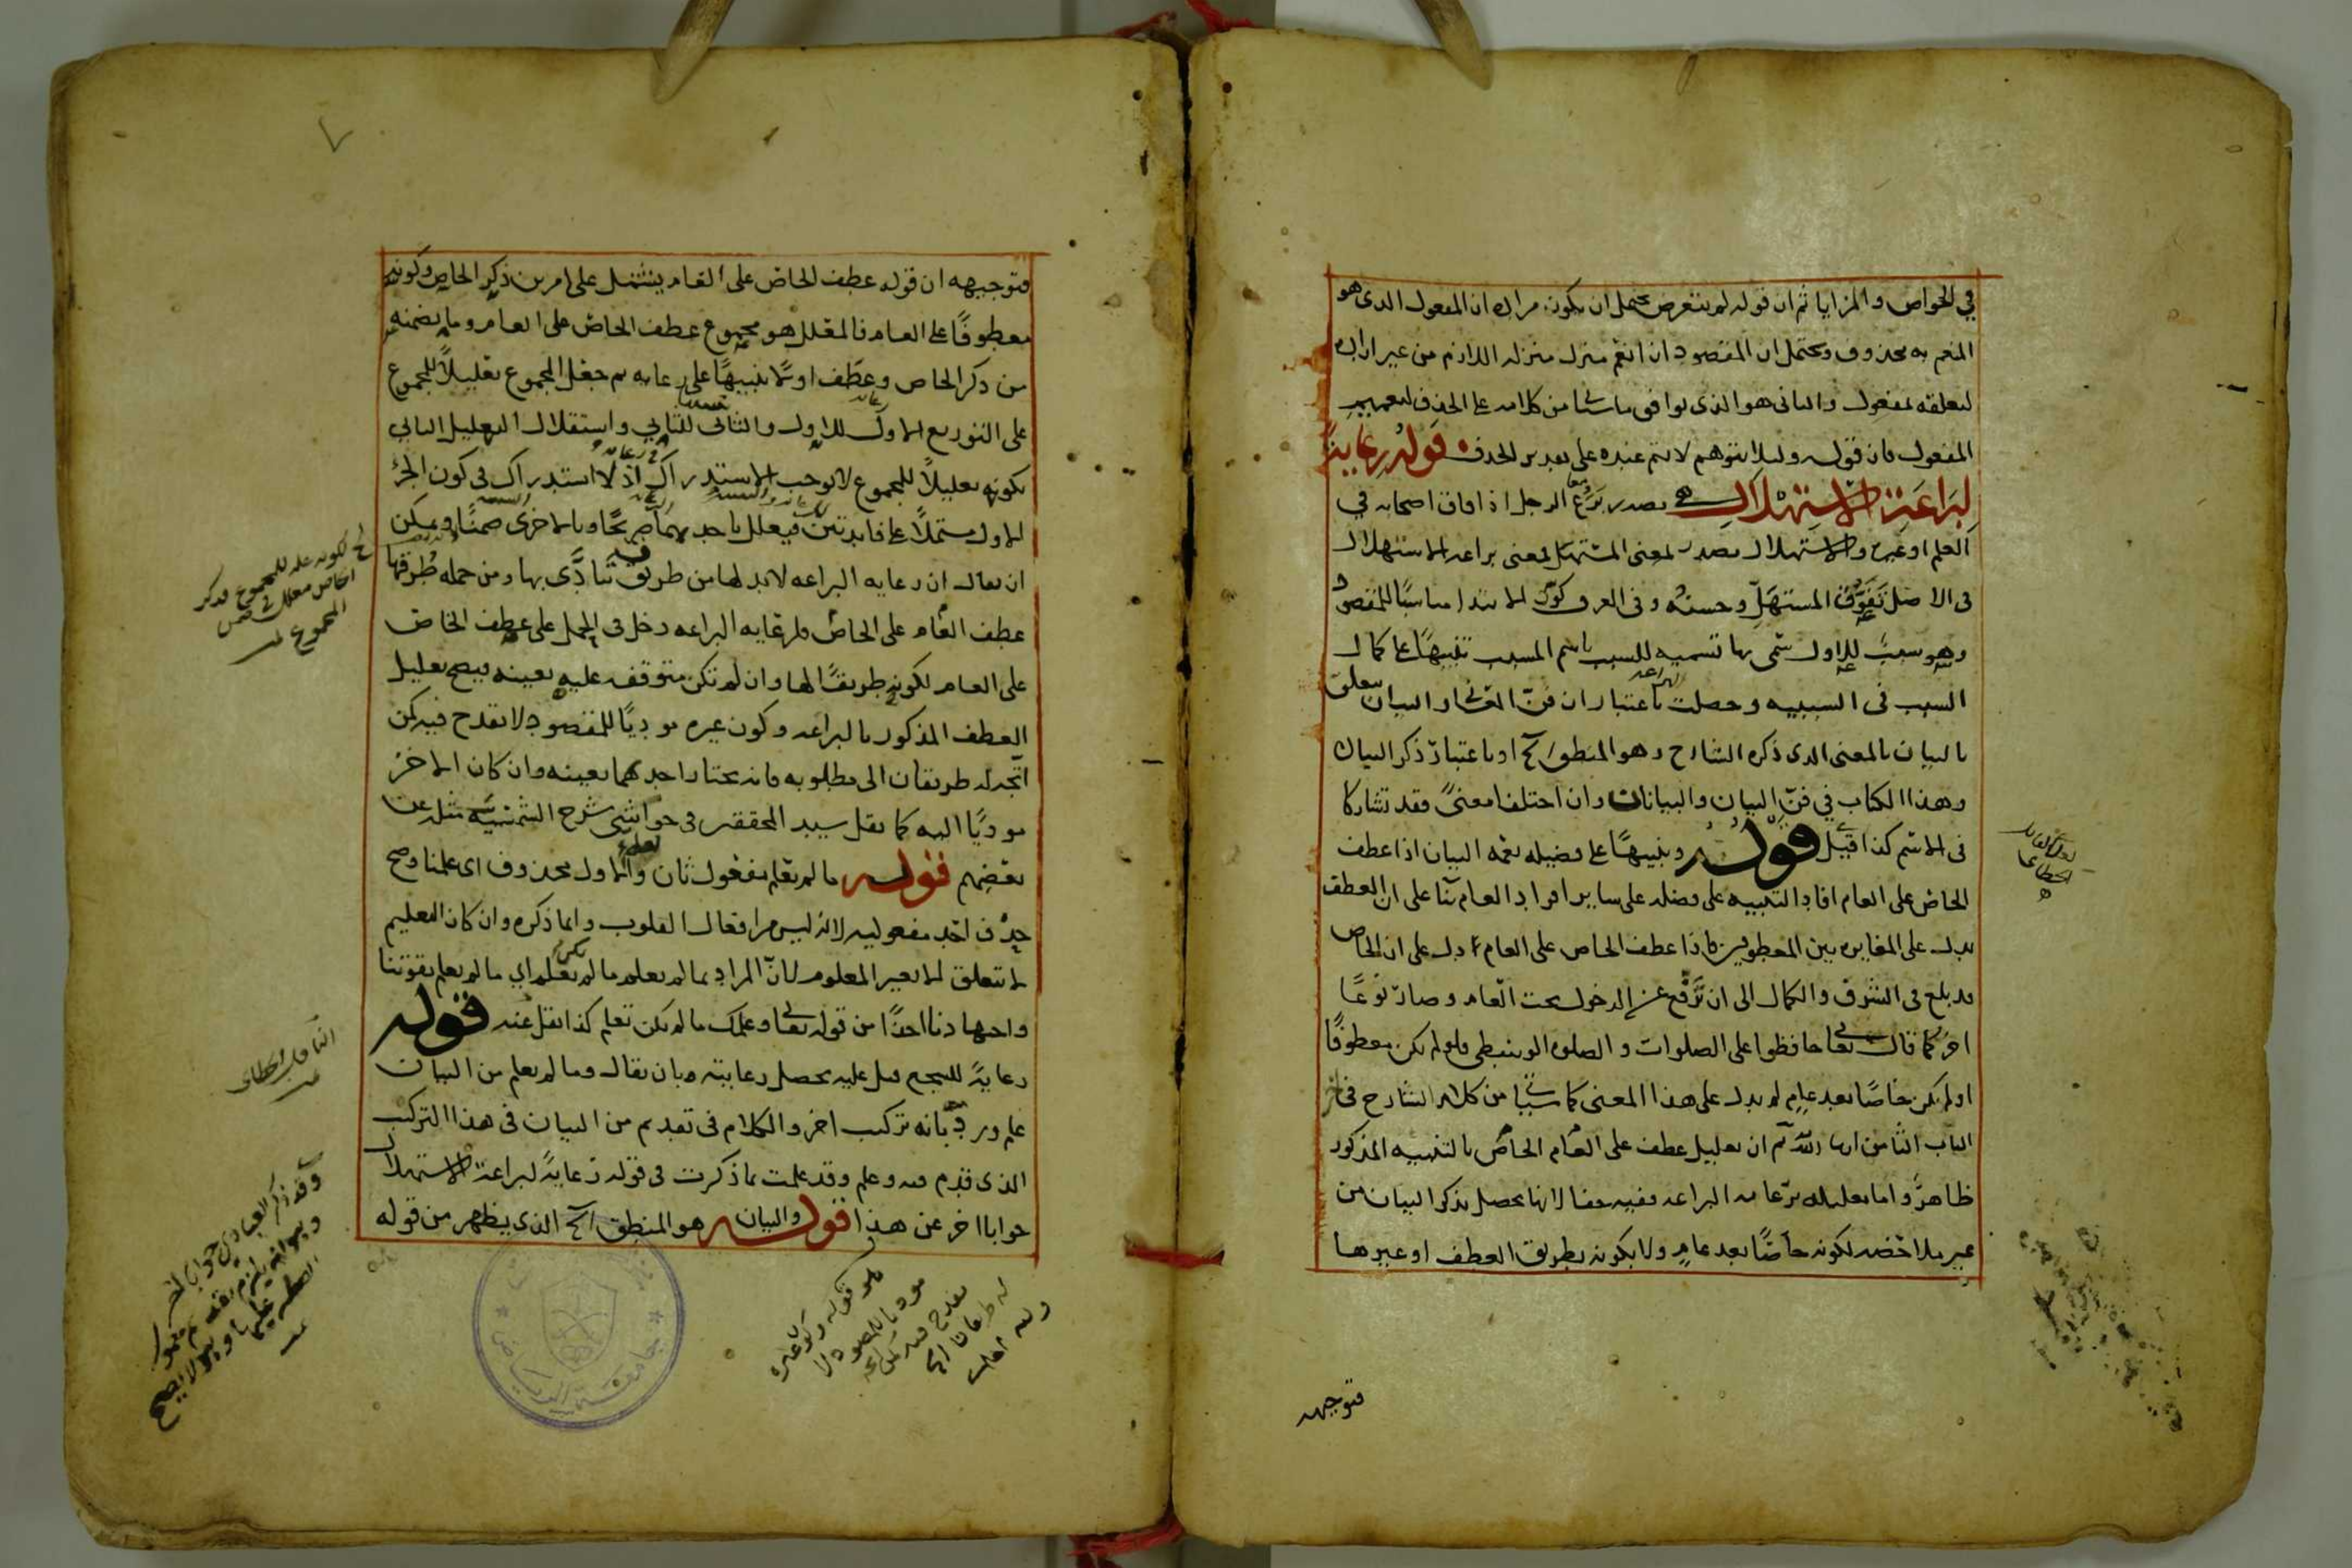 في الخواص والمزايا ثم ان قوله لم يتعرض يحتمل ان يكون مراده ان المفعول الذى هو
المنعم به محذوف ويحتمل ان المقصود ان انعم منزل منزلة اللازم من غير ارادة
لتعلقه بمفعول والثانى هو الذى يوافق ما سيأتى من كلامه على الحذف لتعميم
المفعول فان قوله ولئلا يتوهم لا يتم عنده على تقدير الحذف قوله رعايةً
لبراعة الاستهلال هى مصدر برع الرجل اذا فاق اصحابه في
العلم او غيره والاستهلال مصدر بمعنى المستهل بمعنى براعة الاستهلال
فى الاصل تفوق المستهل وحسنه وفى العرف كون الابتدا مناسبًا للمقصود
وهو سبب للاول سمى بها تسمية للسبب باسم المسبب تنبيهًا على كمال
السبب فى السببية وحصلت البراعة باعتبار ان فن المعانى والبيان يتعلق
بالبيان بالمعنى الذى ذكره الشارح وهو المنطق الخ او باعتبار ذكر البيان
وهذا الكتاب في فن البيان والبيانان وان اختلفا معنىً فقد تشاركا
فى الاسم كذا قيل قوله وتنبيهًا على فضيلة نعمة البيان اذا عطف
الخاص على العام افاد التنبيه على فضله على ساير افراد العام بنا على ان العطف
يدل على المغايرة بين المعطوفين فاذا عطف الخاص على العام دل على ان الخاص
قد بلغ فى الشرف والكمال الى ان ترفع عن الدخول تحت العام وصار نوعًا
اخر كما قال تعالى حافظوا على الصلوات والصلوة الوسطى فلو لم يكن معطوفًا
او لم يكن خاصًا بعد عام لم يدل على هذا المعنى كما سيأتى من كلام الشارح فى اخر
الباب الثامن ان شا الله ثم ان تعليل عطف على العام الخاص بالتنبيه المذكور
ظاهر واما تعليله برعاية البراعة ففيه خفا لانها تحصل بذكر البيان من
غير ملاحظة لكونه خاصًا بعد عام ولا بكونه بطريق العطف او غيرها
فتوجيهه
فتوجيهه ان قوله عطف الخاص على العام يشتمل على امرين ذكر الخاص وكونه
معطوفًا على العام فالمعلل هو مجموع عطف الخاص على العام وما يضمنه
من ذكر الخاص وعطف اولًا تنبيهًا على رعاية ثم جعل المجموع تعليلًا للمجموع
على التوزيع الاول للاول والثانى للثاني واستقلال التعليل الثانى
بكونه تعليلًا للمجموع لا يوجب الاستدراك اذ لا استدراك فى كون الجزء
الاول مشتملًا على فايدتين فيعلل باحديهما صريحًا وبالاخرى ضمنًا ويمكن
ان يقال ان رعاية البراعة لابد لها من طريق تتأدى بها ومن جملة طرقها
عطف العام على الخاص فلرعاية البراعة دخل فى الحمل على عطف الخاص
على العام لكونه طريقًا لها وان لم تكن متوقفة عليه بعينه فيصح تعليل
العطف المذكور بالبراعة وكون غيره موديًا للمقصود لا يقدح فيه كمن
اتجه له طريقان الى مطلوبه فانه يختار احدهما بعينه وان كان الاخر
موديًا اليه كما نقل سيد المحققين فى حواشى شرح الشمسية مثله عن
بعضهم قوله ما لم نعلم مفعول ثان لعلم والاول محذوف اى علمنا وصح
حذف احد مفعوليه لانه ليس من افعال القلوب وانما ذكره وان كان التعليم
لا يتعلق الا بغير المعلوم لان المراد بما لم نعلم ما لم نكن نعلم اي ما لم نعلم بقوتنا
واجتهادنا اخذًا من قوله تعالى وعلمك ما لم تكن تعلم كذا نقل عنه قوله
رعايةً للسجع قيل عليه تحصل رعايته بان يقال وما لم نعلم من البيان
علم ورد بانه تركيب اخر والكلام فى تقديم من البيان فى هذا التركيب
الذى قدم فيه وعلم وقد علمت بما ذكرت فى قوله رعايةً لبراعة الاستهلال
جوابا اخر عن هذا قوله والبيان هو المنطق الخ الذى يظهر من قوله